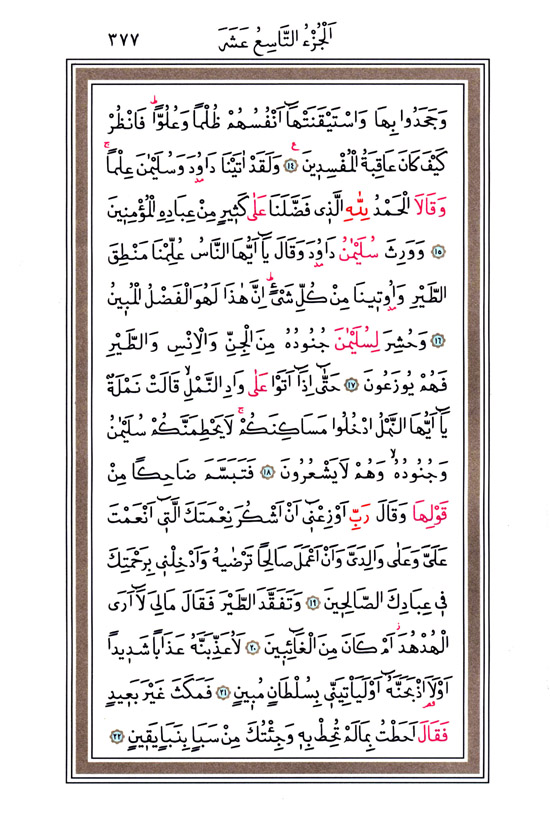 اَلْجُزْءُ التَّاسِعُ عَشَرَ ٣٧٧
وَجَحَدُوا بِهَا وَاسْتَيْقَنَتْهَٓا اَنْفُسُهُمْ ظُلْمًا وَعُلُوًّاۜ فَانْظُرْ
كَيْفَ كَانَ عَاقِبَةُ الْمُفْسِدٖينَ ﴿١٤﴾ وَلَقَدْ اٰتَيْنَا دَاوُ۫دَ وَسُلَيْمٰنَ عِلْمًاۚ
وَقَالَا الْحَمْدُ لِلّٰهِ الَّذٖي فَضَّلَنَا عَلٰى كَثٖيرٍ مِنْ عِبَادِهِ الْمُؤْمِنٖينَ
﴿١٥﴾ وَوَرِثَ سُلَيْمٰنُ دَاوُ۫دَ وَقَالَ يَٓا اَيُّهَا النَّاسُ عُلِّمْنَا مَنْطِقَ
الطَّيْرِ وَاُو۫تٖينَا مِنْ كُلِّ شَيْءٍۜ اِنَّ هٰذَا لَهُوَ الْفَضْلُ الْمُبٖينُ
﴿١٦﴾ وَحُشِرَ لِسُلَيْمٰنَ جُنُودُهُ مِنَ الْجِنِّ وَالْاِنْسِ وَالطَّيْرِ
فَهُمْ يُوزَعُونَ ﴿١٧﴾ حَتّٰٓى اِذَٓا اَتَوْا عَلٰى وَادِ النَّمْلِۙ قَالَتْ نَمْلَةٌ
يَٓا اَيُّهَا النَّمْلُ ادْخُلُوا مَسَاكِنَكُمْۚ لَا يَحْطِمَنَّكُمْ سُلَيْمٰنُ
وَجُنُودُهُۙ وَهُمْ لَا يَشْعُرُونَ ﴿١٨﴾ فَتَبَسَّمَ ضَاحِكًا مِنْ
قَوْلِهَا وَقَالَ رَبِّ اَوْزِعْنٖٓي اَنْ اَشْكُرَ نِعْمَتَكَ الَّتٖٓي اَنْعَمْتَ
عَلَيَّ وَعَلٰى وَالِدَيَّ وَاَنْ اَعْمَلَ صَالِحًا تَرْضٰيهُ وَاَدْخِلْنٖي بِرَحْمَتِكَ
فٖي عِبَادِكَ الصَّالِحٖينَ ﴿١٩﴾ وَتَفَقَّدَ الطَّيْرَ فَقَالَ مَا لِيَ لَٓا اَرَى
الْهُدْهُدَۘ اَمْ كَانَ مِنَ الْغَٓائِبٖينَ ﴿٢٠﴾ لَاُعَذِّبَنَّهُ عَذَابًا شَدٖيدًا
اَوْ لَا۬اَذْبَحَنَّهُٓ اَوْ لَيَأْتِيَنّٖي بِسُلْطَانٍ مُبٖينٍ ﴿٢١﴾ فَمَكَثَ غَيْرَ بَعٖيدٍ
فَقَالَ اَحَطْتُ بِمَا لَمْ تُحِطْ بِهٖ وَجِئْتُكَ مِنْ سَبَاٍ بِنَبَاٍ يَقٖينٍ ﴿٢٢﴾